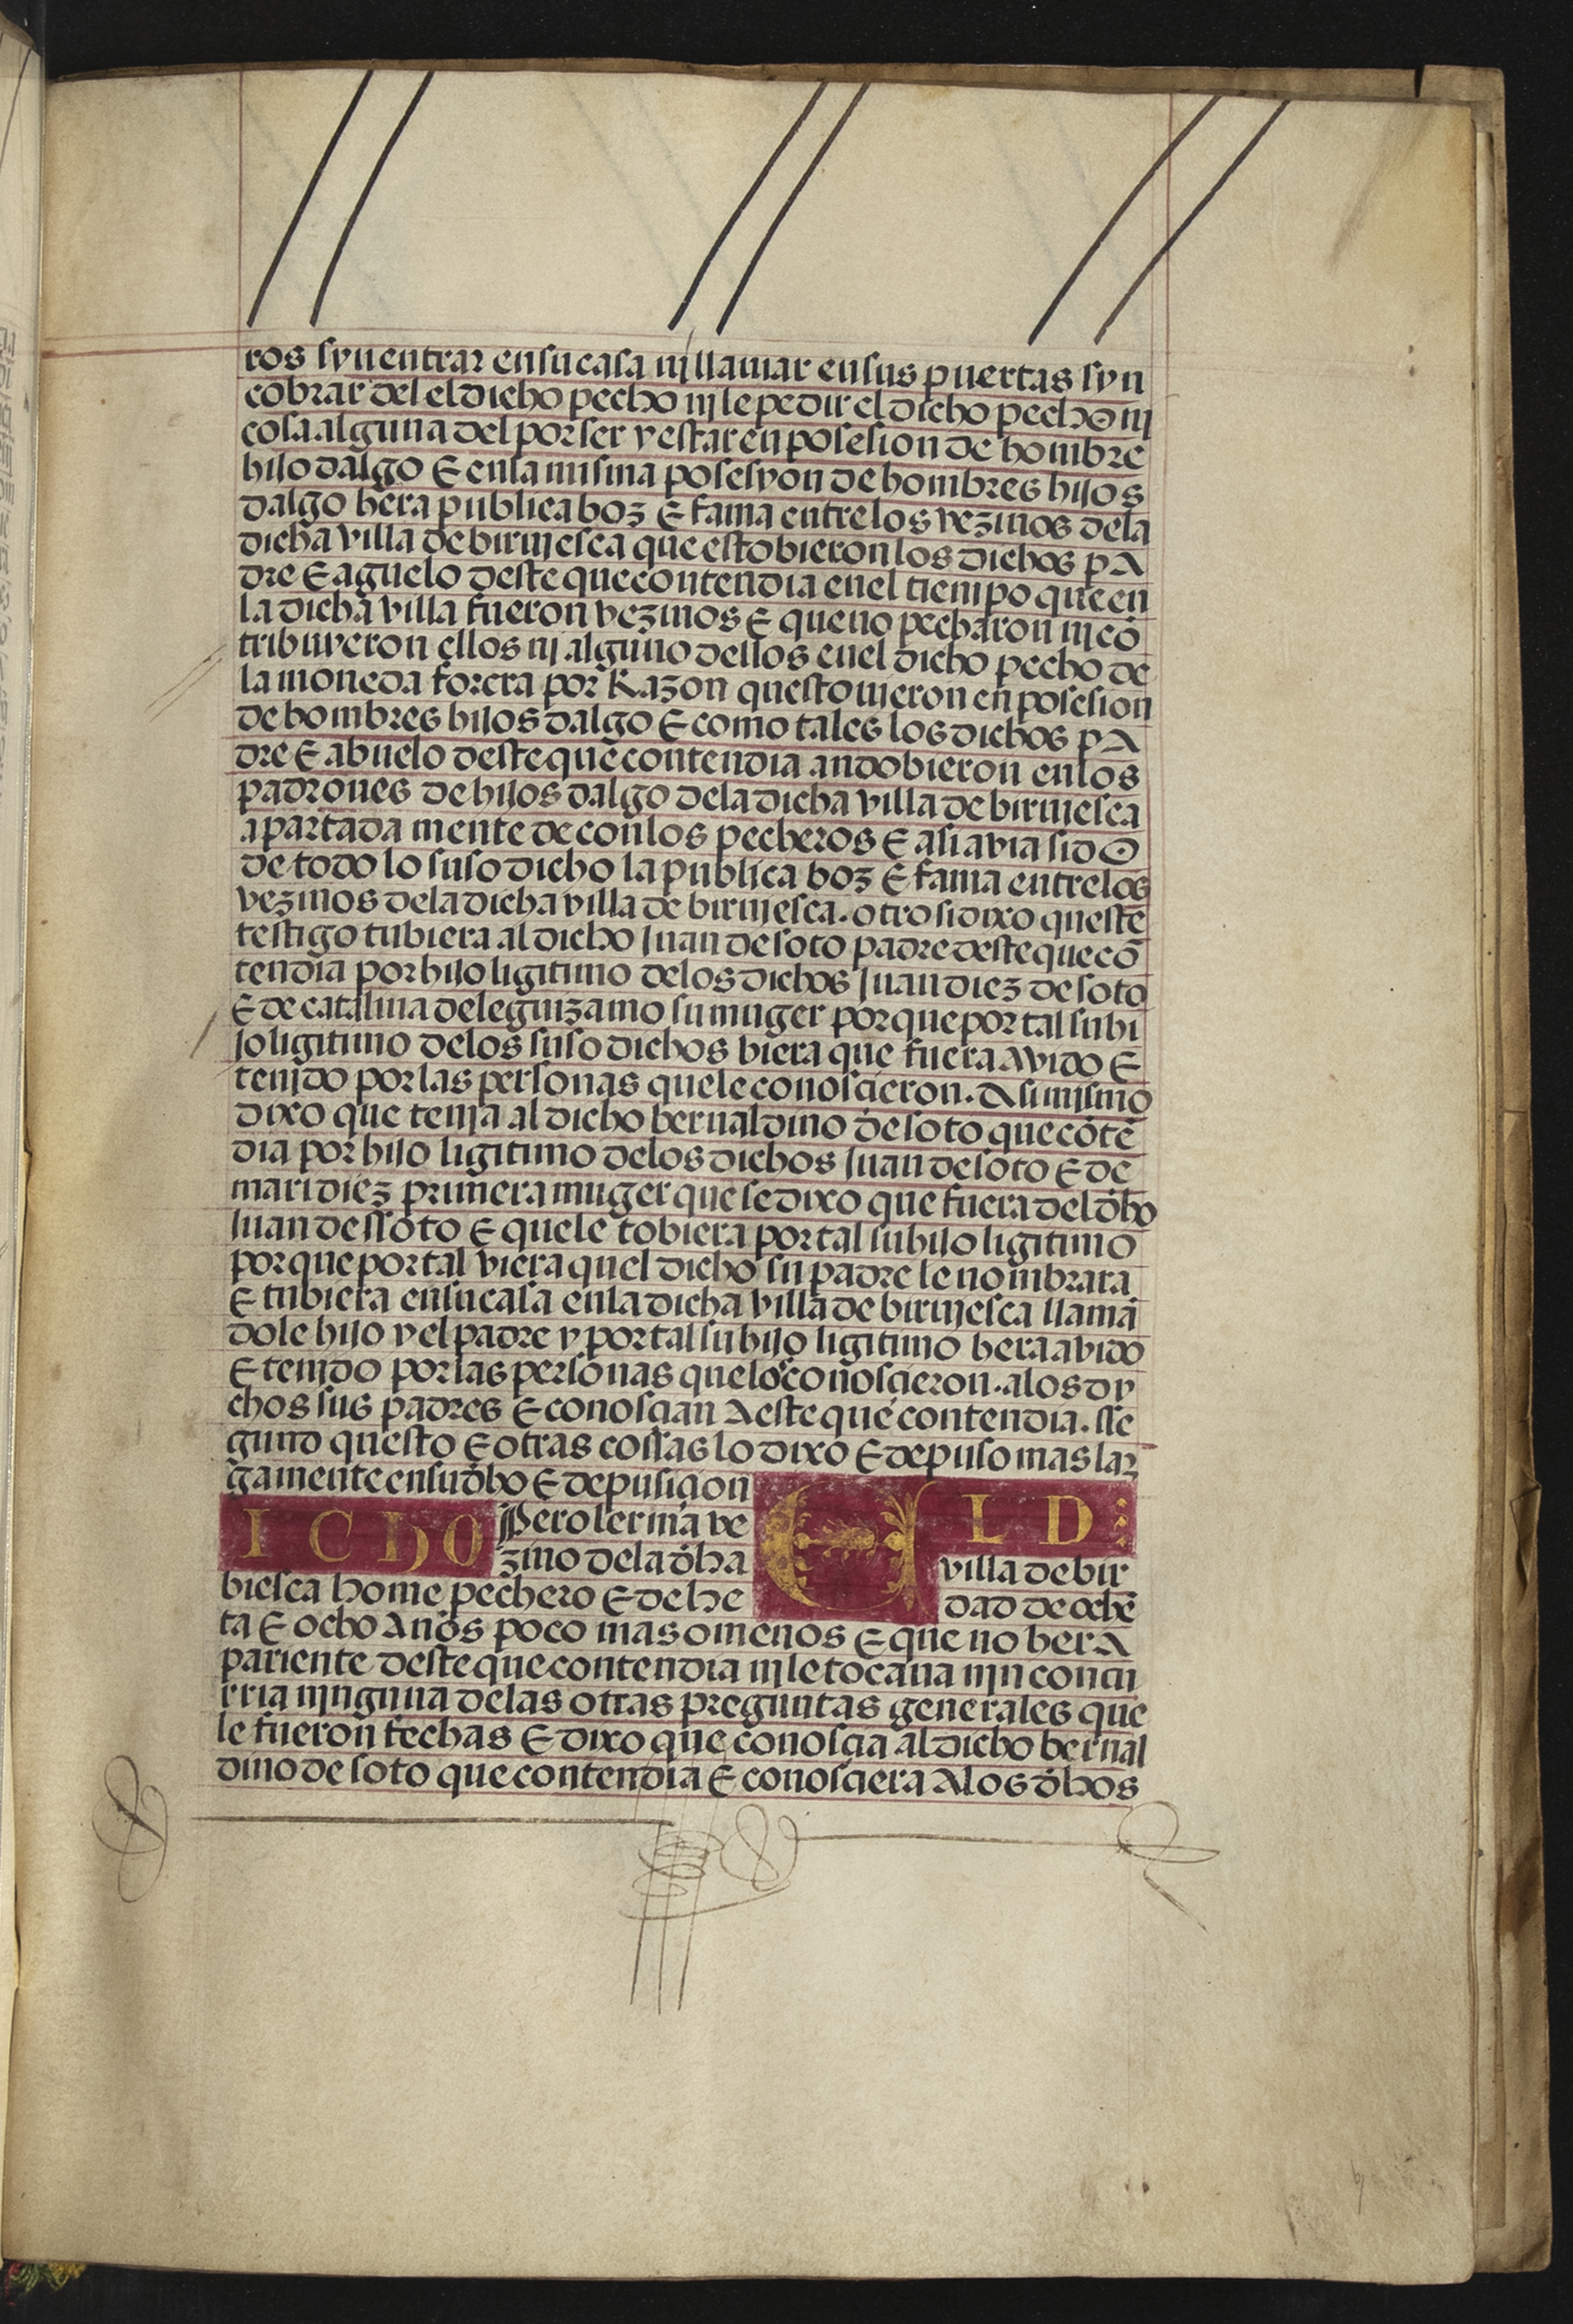 ros syn entrar en su casa nj llamar en sus puertas syn
cobrar del el dicho pecho nj le pedir el dicho pecho nj
cosa alguna del por ser y estar en posesion de hombre
hijo dalgo E en la misma posesyon de hombres hijos
dalgo hera publica boz E fama entre los vezinos de la
dicha villa de birujesca que estobieron los dichos pa
dre E aguelo deste que contendia en el tiempo que en
la dicha villa fueron vezinos E que no pecharon nj cō
tribuyeron ellos nj alguno dellos en el dicho pecho de
la moneda forera por Razon questovieron en posesion
de hombres hijos dalgo E como tales los dichos pa
dre E abuelo deste que contendia andobieron en los
padrones de hijos dalgo de la dicha villa de birujesca
apartada mente de con los pecheros E asi avia sido
de todo lo suso dicho la publica boz E fama entre los
vezinos de la dicha villa de birujesca. otrosi dixo queste
testigo tubiera al dicho Juan de soto padre deste que cō
tendia por hijo ligitimo de los dichos Juan diez de soto
E de catalina de leguizamo su muger porque por tal su hi
jo ligitimo de los suso dichos biera que fuera avido E
tenjdo por las personas que le conoscieron. Asi mjsmo
dixo que tenja al dicho bernaldino de soto que cōtē
dia por hijo ligitimo de los dichos Juan de soto E de
mari diez primera muger que se dixo que fuera del dho
Juan de ssoto E que le tobiera por tal su hijo ligitimo
porque por tal viera quel dicho su padre le nombrara
E tubiera en su casa en la dicha villa de birujesca llamā
dole hijo y el padre y por tal su hijo ligitimo hera avido
E tenjdo por las personas que lo conoscieron. a los dy
chos sus padres E conoscian A este que contendia. sse
gund questo E otras cossas lo dixo E depuso mas lar
gamente en su dho E depusiçion
EL D
ICHO Pero lerma ve
zino de la dha villa de bir
biesca home pechero E de he dad de ochē
ta E ocho Años poco mas o menos E que no hera
pariente deste que contendia nj le tocava njn concu
rria njnguna de las otras preguntas generales que
le fueron fechas E dixo que conoscia al dicho bernal
dino de soto que contendia E conosciera A los dhos